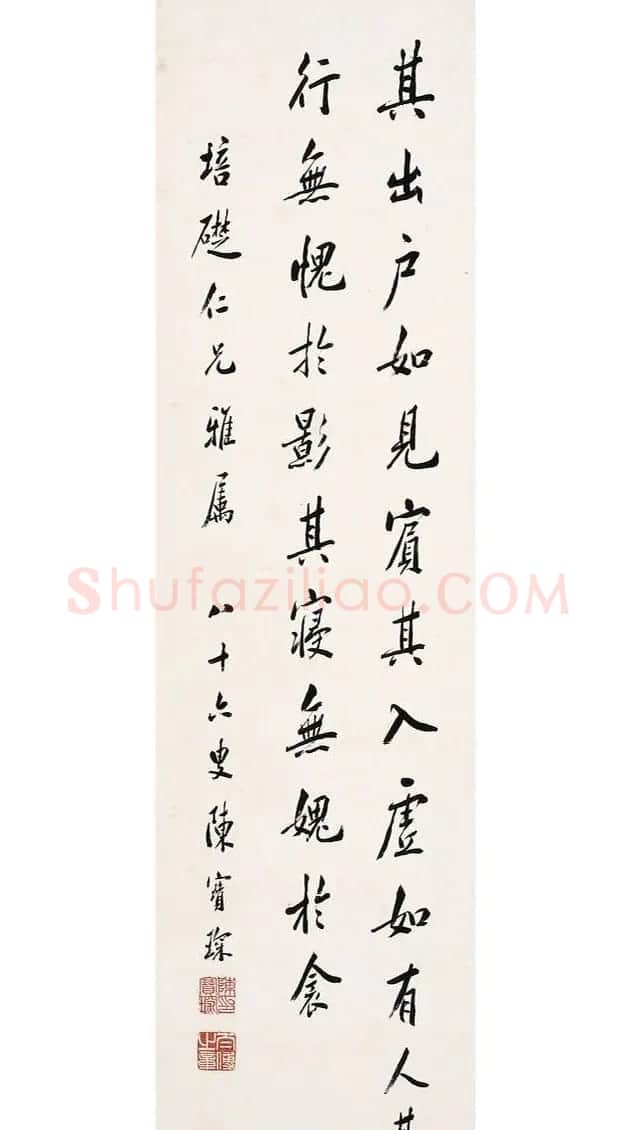 其出户如見賓其入虛如有人其
行無愧於影其寢無媿於衾
培礎仁兄雅屬 八十六叟陳寶琛
陳印寶琛
Shufaziliao.COM